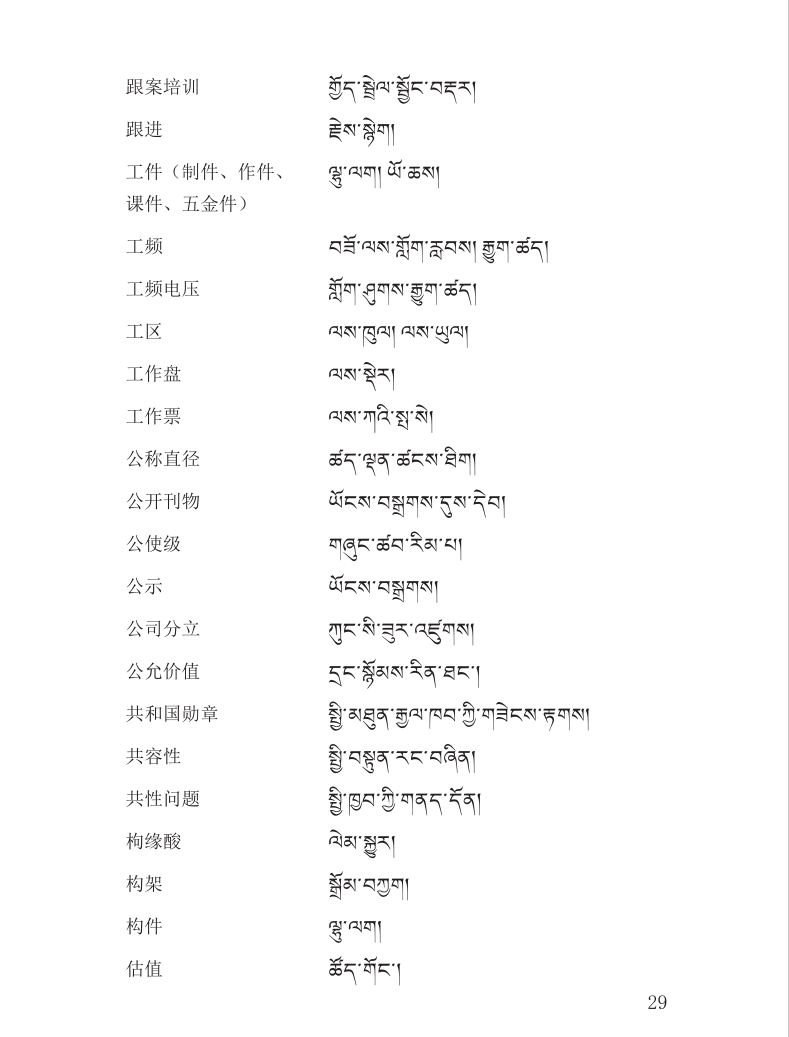 跟案培训 གྱོད་སྦྲེལ་སྦྱོང་བརྡར།
跟进 རྗེས་སྙེག།
工件（制件、作件、 ལྷུ་ལག། ཡོ་ཆས།
课件、五金件）
工频 བཟོ་ལས་གློག་རླབས། རྒྱུག་ཚད།
工频电压 གློག་ཤུགས་རྒྱུག་ཚད།
工区 ལས་ཁུལ། ལས་ཡུལ།
工作盘 ལས་སྡེར།
工作票 ལས་ཀའི་སྤ་སེ།
公称直径 ཚད་ལྡན་ཚངས་ཐིག།
公开刊物 ཡོངས་བསྒྲགས་དུས་དེབ།
公使级 གཞུང་ཚབ་རིམ་པ།
公示 ཡོངས་བསྒྲགས།
公司分立 ཀུང་སི་ཟུར་འཛུགས།
公允价值 དྲང་སྙོམས་རིན་ཐང་།
共和国勋章 སྤྱི་མཐུན་རྒྱལ་ཁབ་ཀྱི་གཟེངས་རྟགས།
共容性 སྤྱི་བསྟུན་རང་བཞིན།
共性问题 སྤྱི་ཁྱབ་ཀྱི་གནད་དོན།
枸缘酸 ལེམ་སྐྱུར།
构架 སྒྲོམ་བཀྱག།
构件 ལྷུ་ལག།
估值 ཚོད་གོང་།
29